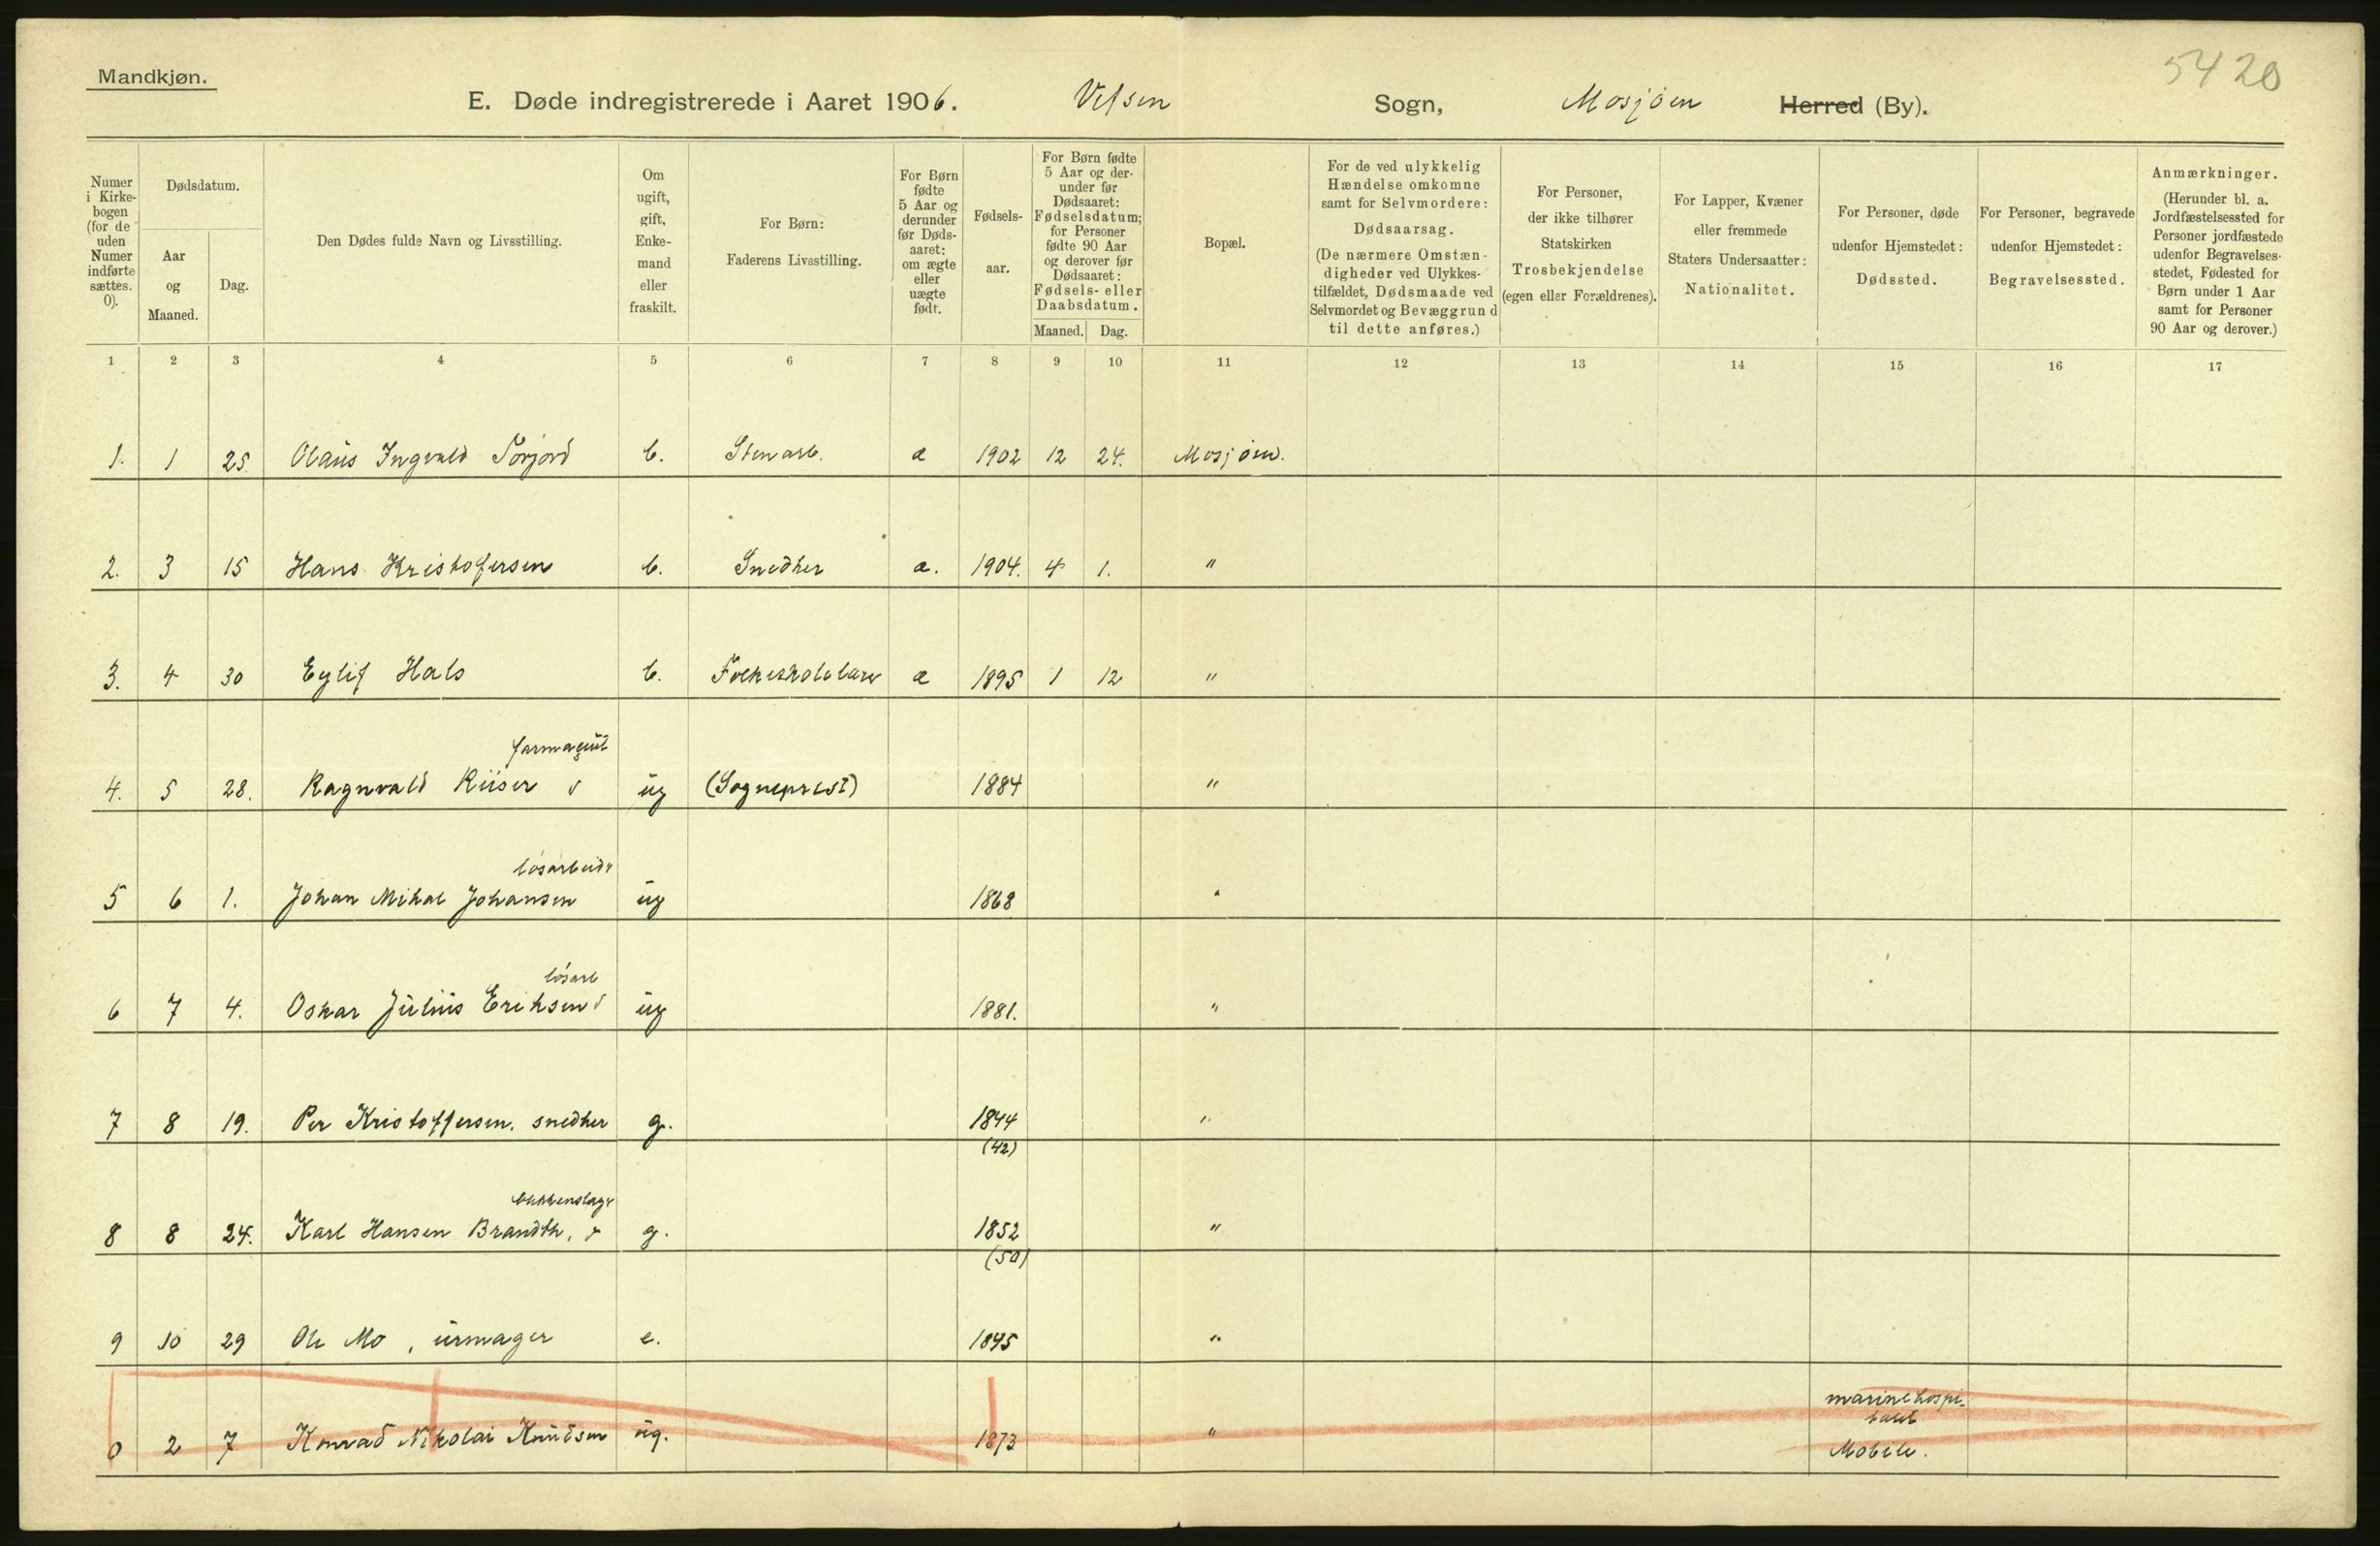 Mandkjøn.
5420
E. Døde indregistrerede i Aaret 1906. Vefsen Sogn, Mosjøen Herred (By).
Numer i Kirke-bogen (for de uden Numer indførte sættes. 0).
Dødsdatum.
Aar og Maaned.
Dag.
Den Dødes fulde Navn og Livsstilling.
Om ugift, gift, Enke-mand eller fraskilt.
For Børn: Faderens Livsstilling.
For Børn fødte 5 Aar og derunder før Døds-aaret: om ægte eller uægte født.
Fødsels-aar.
For Børn fødte 5 Aar og der-under før Dødsaaret: Fødselsdatum; for Personer fødte 90 Aar og derover før Dødsaaret: Fødsels- eller Daabsdatum.
Maaned. Dag.
Bopæl.
For de ved ulykkelig Hændelse omkomne samt for Selvmordere: Dødsaarsag. (De nærmere Omstæn-digheder ved Ulykkes-tilfældet, Dødsmaade ved Selvmordet og Bevæggrund til dette anføres.)
For Personer, der ikke tilhører Statskirken Trosbekjendelse (egen eller Forældrenes).
For Lapper, Kvæner eller fremmede Staters Undersaatter: Nationalitet.
For Personer, døde udenfor Hjemstedet: Dødssted.
For Personer, begravede udenfor Hjemstedet: Begravelsessted.
Anmærkninger. (Herunder bl. a. Jordfæstelsessted for Personer jordfæstede udenfor Begravelses-stedet, Fødested for Børn under 1 Aar samt for Personer 90 Aar og derover.)
1 2 3 4 5 6 7 8 9 10 11 12 13 14 15 16 17
1. 1 25. Olaus Ingvald Forjord b. Stenarb. a 1902 12 24. Mosjøen.
2. 3 15 Hans Kristofersen b. Snedker a. 1904. 4 1. "
3. 4 30 Eylif Hals b. Folkeskolelærer a 1895 1 12 "
farmaçeut
4. 5 28. Ragnvald Riiser ug (Sogneprest) 1884 "
løsarbeider
5 6 1. Johan Mikal Johansen ug 1868 "
løsarb
6 7 4. Oskar Julius Eriksen ug 1881. "
7 8 19. Per Kristoffersen. snedker g. 1844 "
(42)
blikkenslager
8 8 24. Karl Hansen Brandth, g. 1852 "
(50)
9 10 29 Ole Mo, urmager e. 1845 "
marinehospi-
talet
0 2 7 Konrad Nikolai Knudsen ug. 1873 " Mobile.